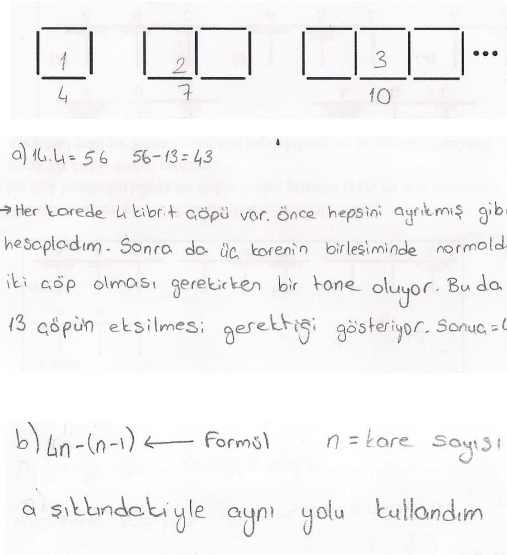 1 2 3
4 7 10
a) 14.4 = 56 56-13 = 43
→ Her karede 4 kibrit çöpü var. önce hepsini ayrıkmış gib
hesapladım. Sonra da üç karenin birleşiminde normald
iki çöp olması gerekirken bir tane oluyor. Bu da
13 çöpün eksilmesi gerektiği gösteriyor. Sonuç =
b) 4n-(n-1) ← Formül n = kare sayısı
a şıkkındakiyle aynı yolu kullandım